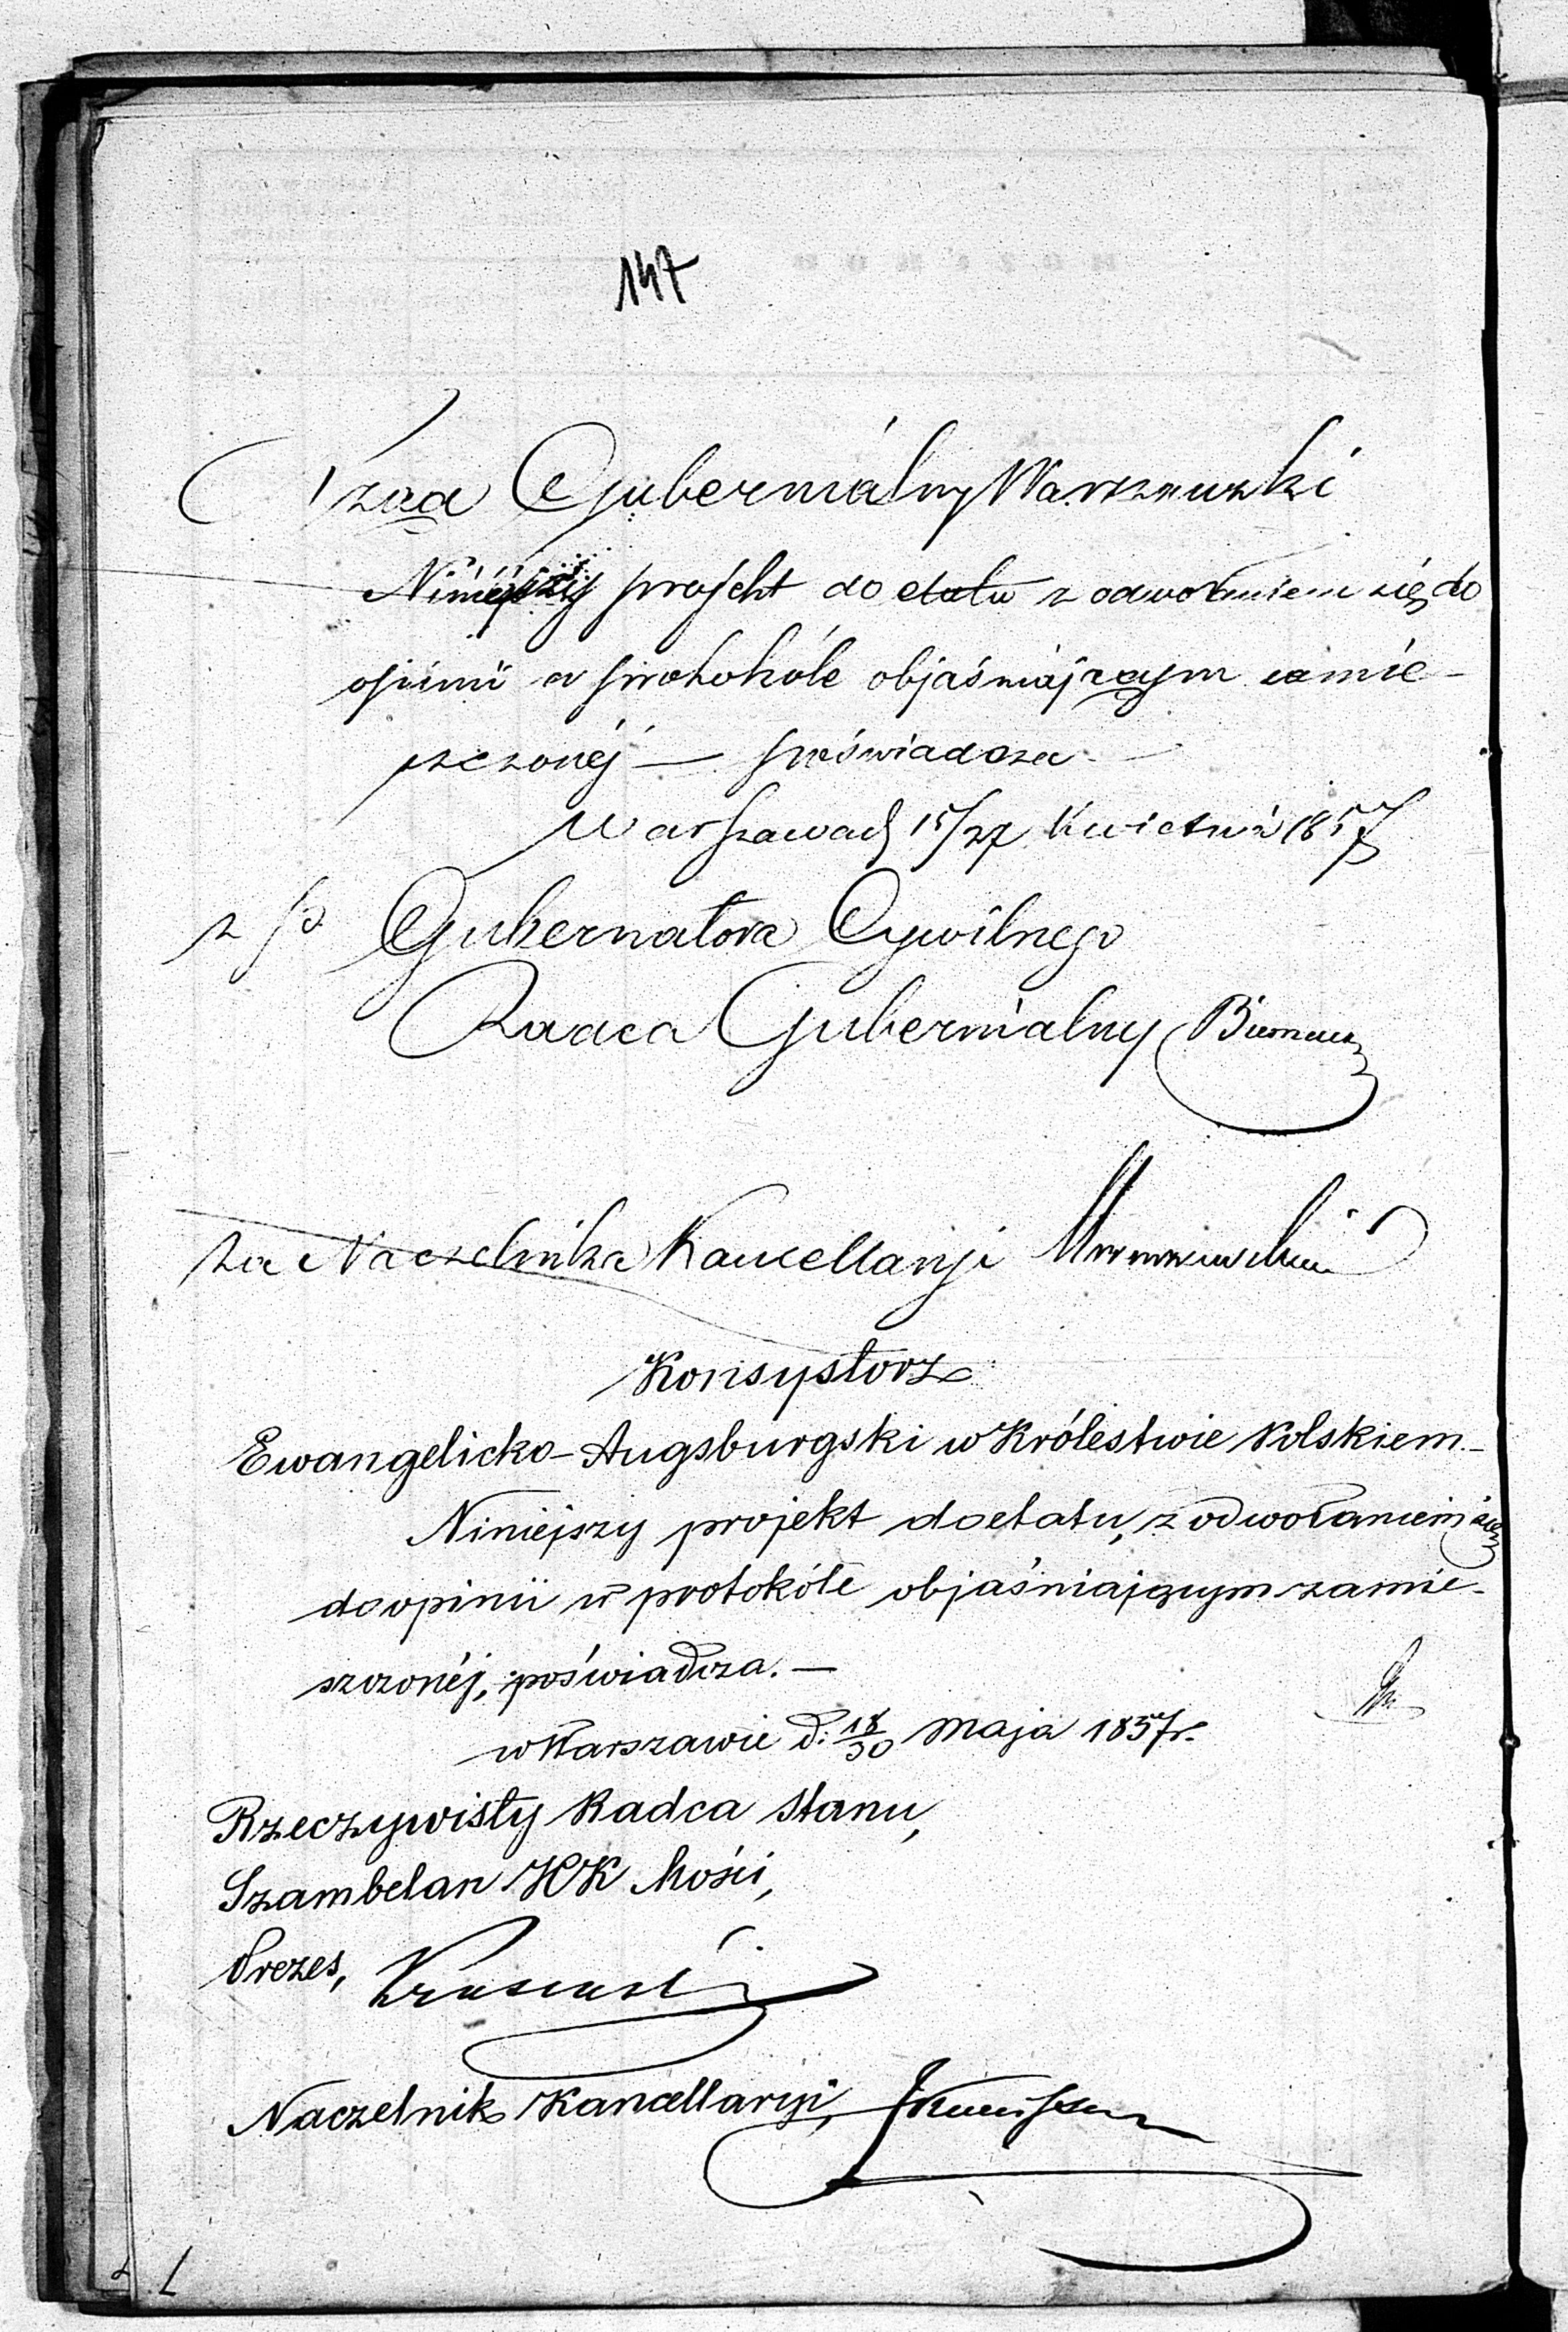 147
Rząd Gubernialny Warszawski
Niniejszy projekt do etatu z odwołaniem się do
opinii w protokóle objaśniającym zamie-
szczonéj — poświadcza
Warszawa d 15/27 Kwietnia 1857
z p Gubernatora Cywilnego
Radca Gubernialny
za Naczelnika Kancellaryi
Konsystorz
Ewangelicko-Augsburgski w Królestwie Polskiem.—
Niniejszy projekt do etatu, z odwołaniem się
do opinii w protokóle objaśniającym zamie-
szczonéj, poświadcza.—
w Warszawie d: 18/30 Maja 1857 r.
Rzeczywisty Radca Stanu,
Szambelan JCK Mości,
Prezes,
Naczelnik Kancellaryi,